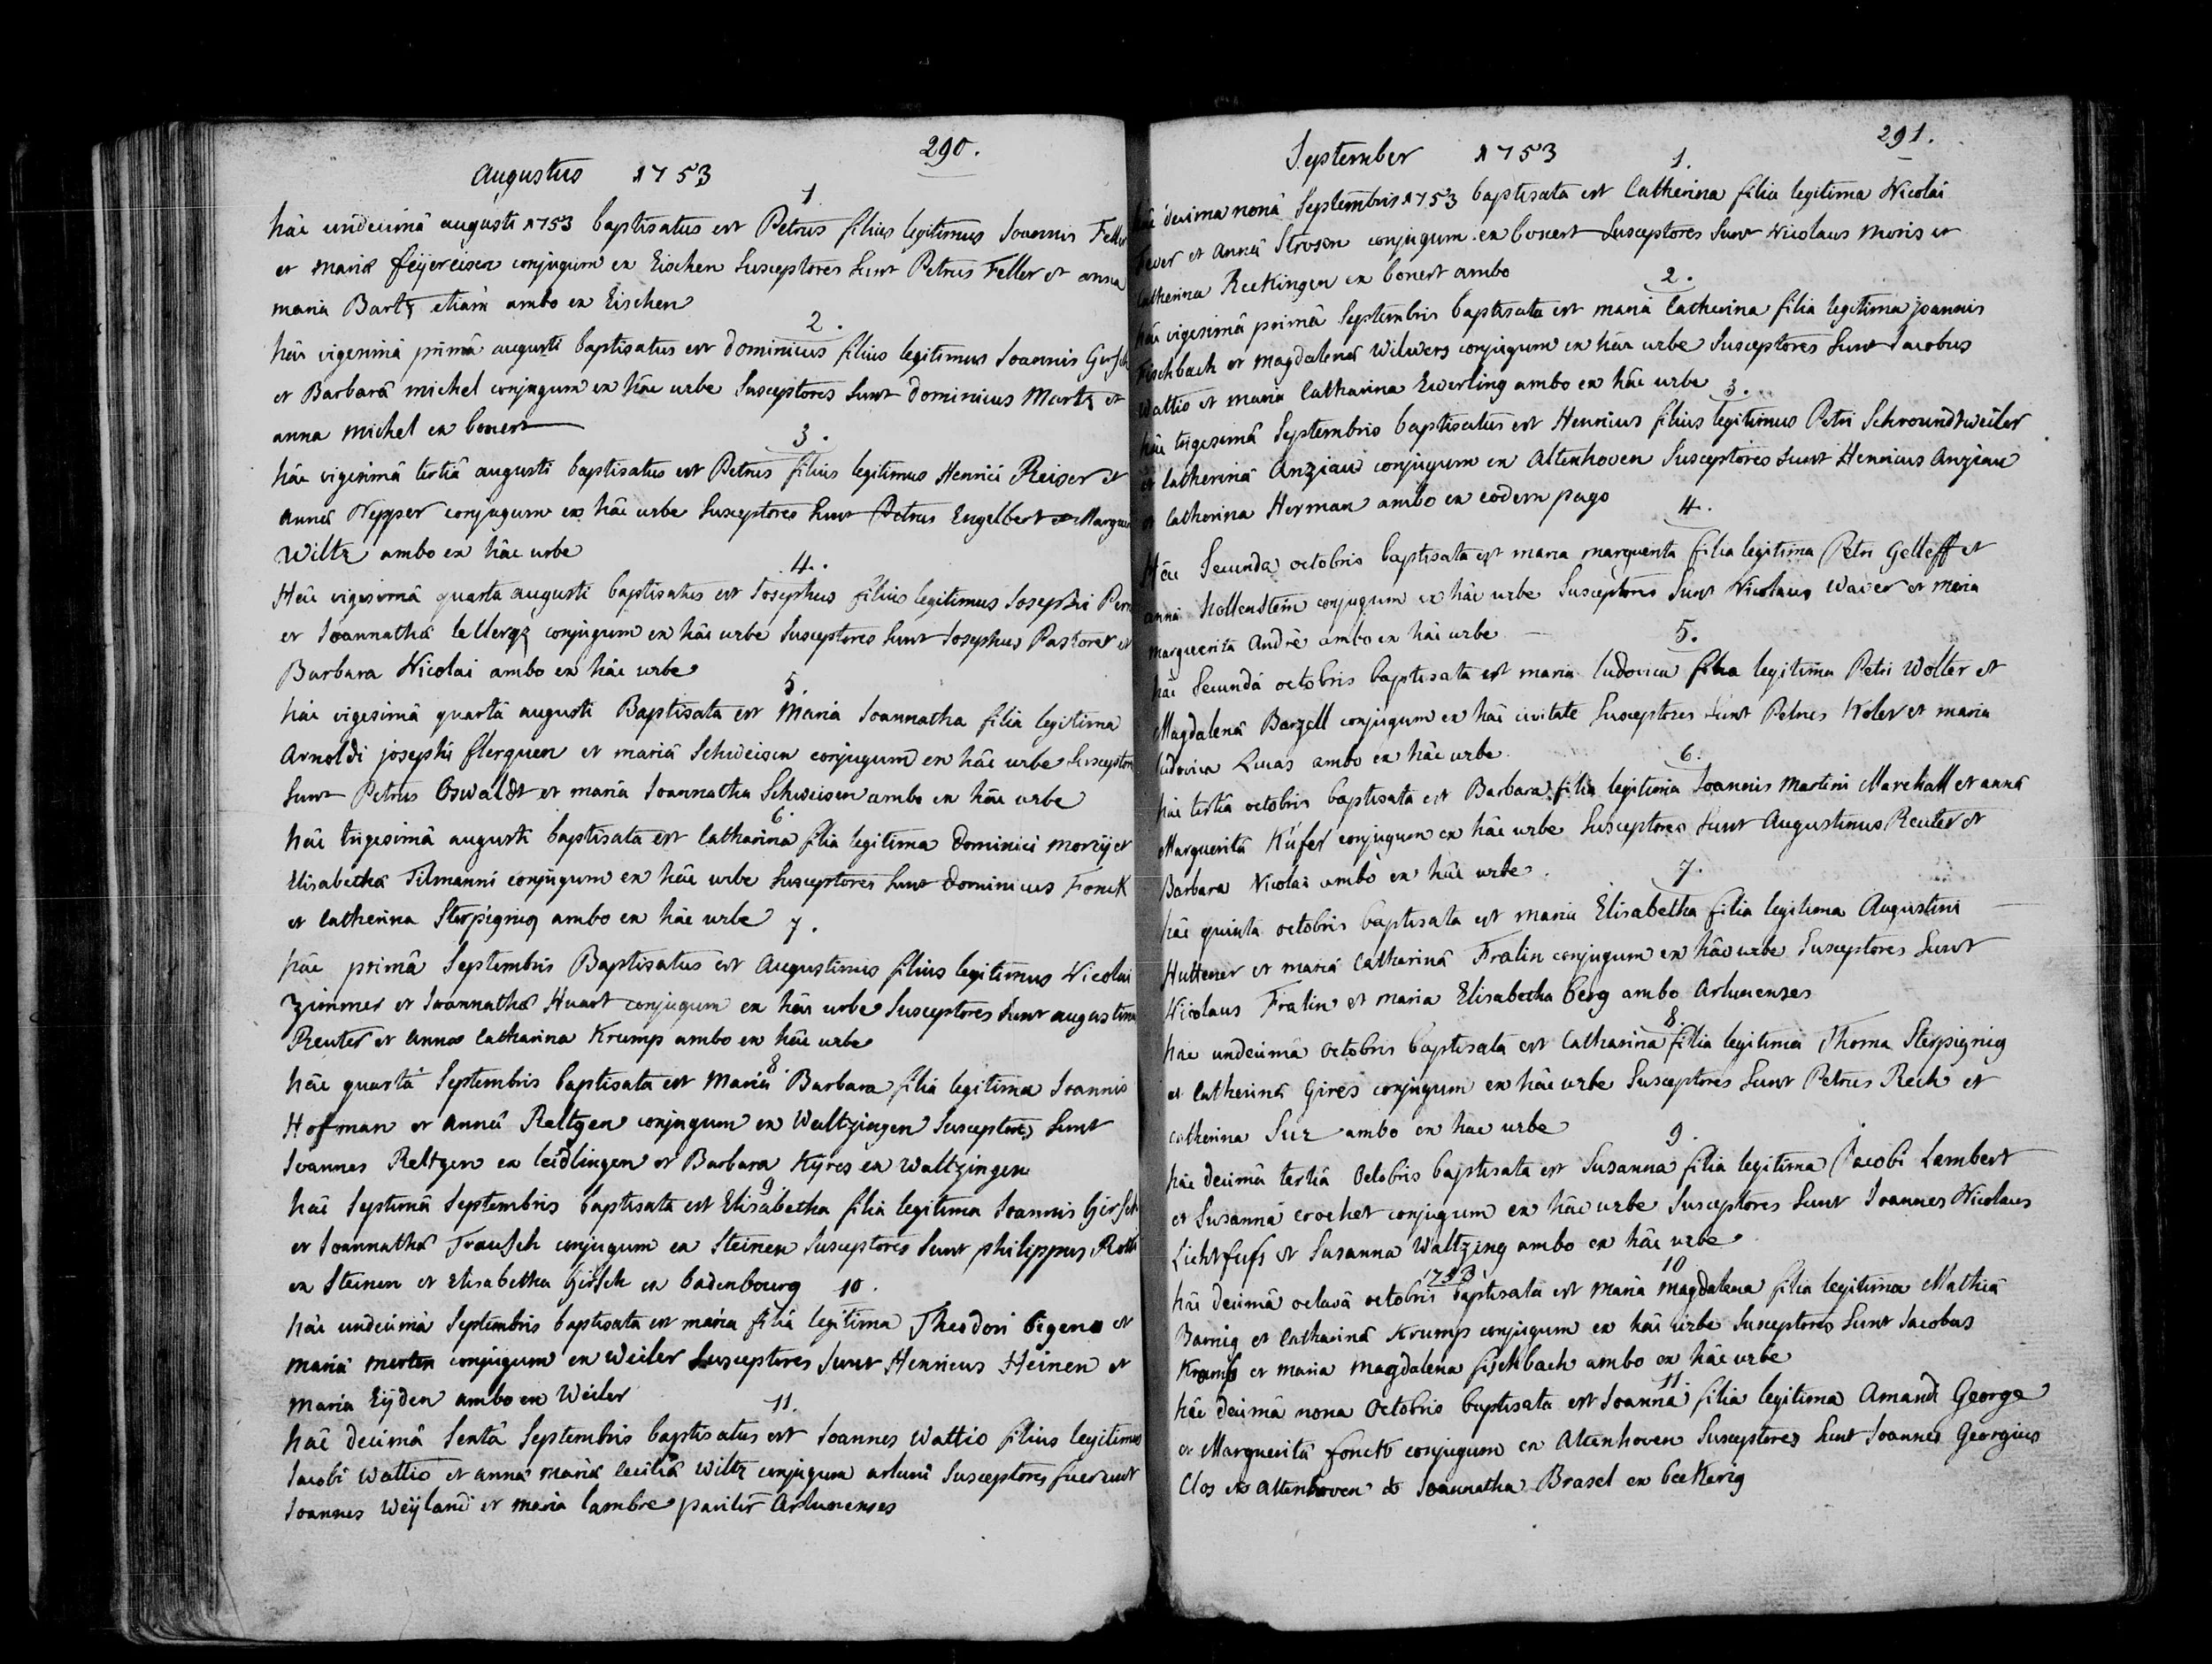 290.
Augustus 1753
1
hâc undecimâ augusti 1753 baptisatus est Petrus filius legitimus Joannis Feller
et mariâ feijereisen conjugum ex Eischen Susceptores Sunt Petrus Feller et anna
maria Bartz etiam ambo ex Eischen
2.
hâc vigesimâ primâ augusti baptisatus est dominicus filius legitimus Joannis
et Barbarâ michel conjugum ex hâc urbe Susceptores Sunt dominicus Martz et
anna michel ex bonert
3.
hâc vigesimâ tertiâ augusti baptisatus est Petrus filius legitimus Henrici Reiser et
annâ Nepper conjugum ex hâc urbe Susceptores Sunt Petrus Engelbert et
Wiltz ambo ex hâc urbe
4.
Hâc vigesimâ quarta augusti baptisatus est Josephus filius legitimus Josephi
et Joannathâ conjugum ex hâc urbe Susceptores Sunt Josephus Pastoret et
Barbara Nicolai ambo ex hâc urbe
5.
hâc vigesimâ quartâ augusti Baptisata est Maria Joannatha filia legitima
Arnoldi josephi flerquen et mariâ Schweisen conjugum ex hâc urbe
Sunt Petrus Oswaldt et maria Joannatha Schweisen ambo ex hâc urbe
6.
hâc trigesimâ augusti baptisata est Catharina filia legitima Dominici morcij et
Elisabethâ Tilmanni conjugum ex hâc urbe Susceptores Sunt Dominicus Fonck
et Catherina Sterpignig ambo ex hâc urbe
7.
hâc primâ Septembris Baptisatus est Augustinus filius legitimus Nicolai
Zimmer et Joannathâ Huart conjugum ex hâc urbe Susceptores Sunt
Reuter et anna Catharina Krump ambo ex hâc urbe
8.
hâc quartâ Septembris baptisata est Maria Barbara filia legitima Joannis
Hofman et annâ Reltgen conjugum ex Waltzingen Susceptores Sunt
Joannes Reltgen ex leidlingen et Barbara Kyres ex Waltzingen
9
hâc Septimâ Septembris baptisata est Elisabetha filia legitima Joannis
et Joannathâ Trausch conjugum ex Steinen Susceptores Sunt philippus
ex Steinen et Elisabetha Girsch ex badenbourg
10.
hâc undecimâ Septembris baptisata est maria filia legitima Theodori bigena et
mariâ merten conjugum ex Weiler Susceptores Sunt Henricus Heinen et
Maria Eyden ambo ex Weiler
11.
hâc decimâ Sextâ Septembris baptisatus est Joannes Wattio filius legitimus
Jacobi Wattio et annâ mariâ Ceciliâ Wiltz conjugum arluni Susceptores fuerunt
Joannes Weijland et maria lambre pariter Arlunenses
291.
September 1753
1.
hâc decima nonâ Septembris 1753 baptisata est Catherina filia legitima Nicolai
et Annâ Strosen conjugum ex bonert Susceptores Sunt Nicolaus moris et
Catherina Reckingen ex bonert ambo
2.
hâc vigesimâ primâ Septembris baptisata est maria Catherina filia legitima joannis
Fischbach et magdalenâ Wilwers conjugum ex hâc urbe Susceptores Sunt Jacobus
Wattio et maria Catharina Ewerling ambo ex hâc urbe
3.
hâc trigesimâ Septembris baptisatus est Henricus filius legitimus Petri Schroundtweiler
et Catherinâ Anziau conjugum ex Altenhoven Susceptores Sunt Henricus Anziau
et Catherina Herman ambo ex eodem pago
4.
Hâc Secunda octobris baptisata est maria marguerita filia legitima Petri Gelleff et
annâ hollenstein conjugum ex hâc urbe Susceptores Sunt Nicolaus Waver et maria
marguerita André ambo ex hâc urbe
5.
hâc Secundâ octobris baptisata est maria ludovica filia legitima Petri Wolter et
Magdalenâ Barzell conjugum ex hâc civitate Susceptores Sunt Petrus Woler et maria
ludovica Lucas ambo ex hâc urbe
6.
hâc tertiâ octobris baptisata est Barbara filia legitima Joannis Martini Marchall et annâ
Marguerita Küfer conjugum ex hâc urbe Susceptores Sunt Augustinus Reuter et
Barbara Nicolai ambo ex hâc urbe.
7.
hâc quinta octobris baptisata est maria Elisabetha filia legitima Augustini
Huttener et mariâ Catharinâ Fralin conjugum ex hâc urbe Susceptores Sunt
Nicolaus Fralin et maria Elisabetha berg ambo Arlunenses
8.
hâc undecimâ octobris baptisata est Catharina filia legitima Thoma Sterpignig
et Catherinâ Gires conjugum ex hâc urbe Susceptores Sunt Petrus Reck et
Catherina Sur ambo ex hac urbe
9.
hâc decimâ tertiâ Octobris baptisata est Susanna filia legitima Jacobi Lambert
et Susannâ crochet conjugum ex hâc urbe Susceptores Sunt Joannes Nicolaus
Lichtfufs et Susanna Waltzing ambo ex hâc urbe
10
hâc decimâ octavâ octobris 1753 baptisata est maria magdalena filia legitima Mathiâ
Barnig et Catharinâ Krump conjugum ex hâc urbe Susceptores Sunt Jacobus
Krump et maria magdalena fischbach ambo ex hâc urbe
11.
hâc decimâ nona Octobris baptisata est Joanna filia legitima Amandi George
et Marguerita fonck conjugum ex Altenhoven Susceptores Sunt Joannes Georgius
Clos ex altenhoven et Joannatha Brasel ex beckerig